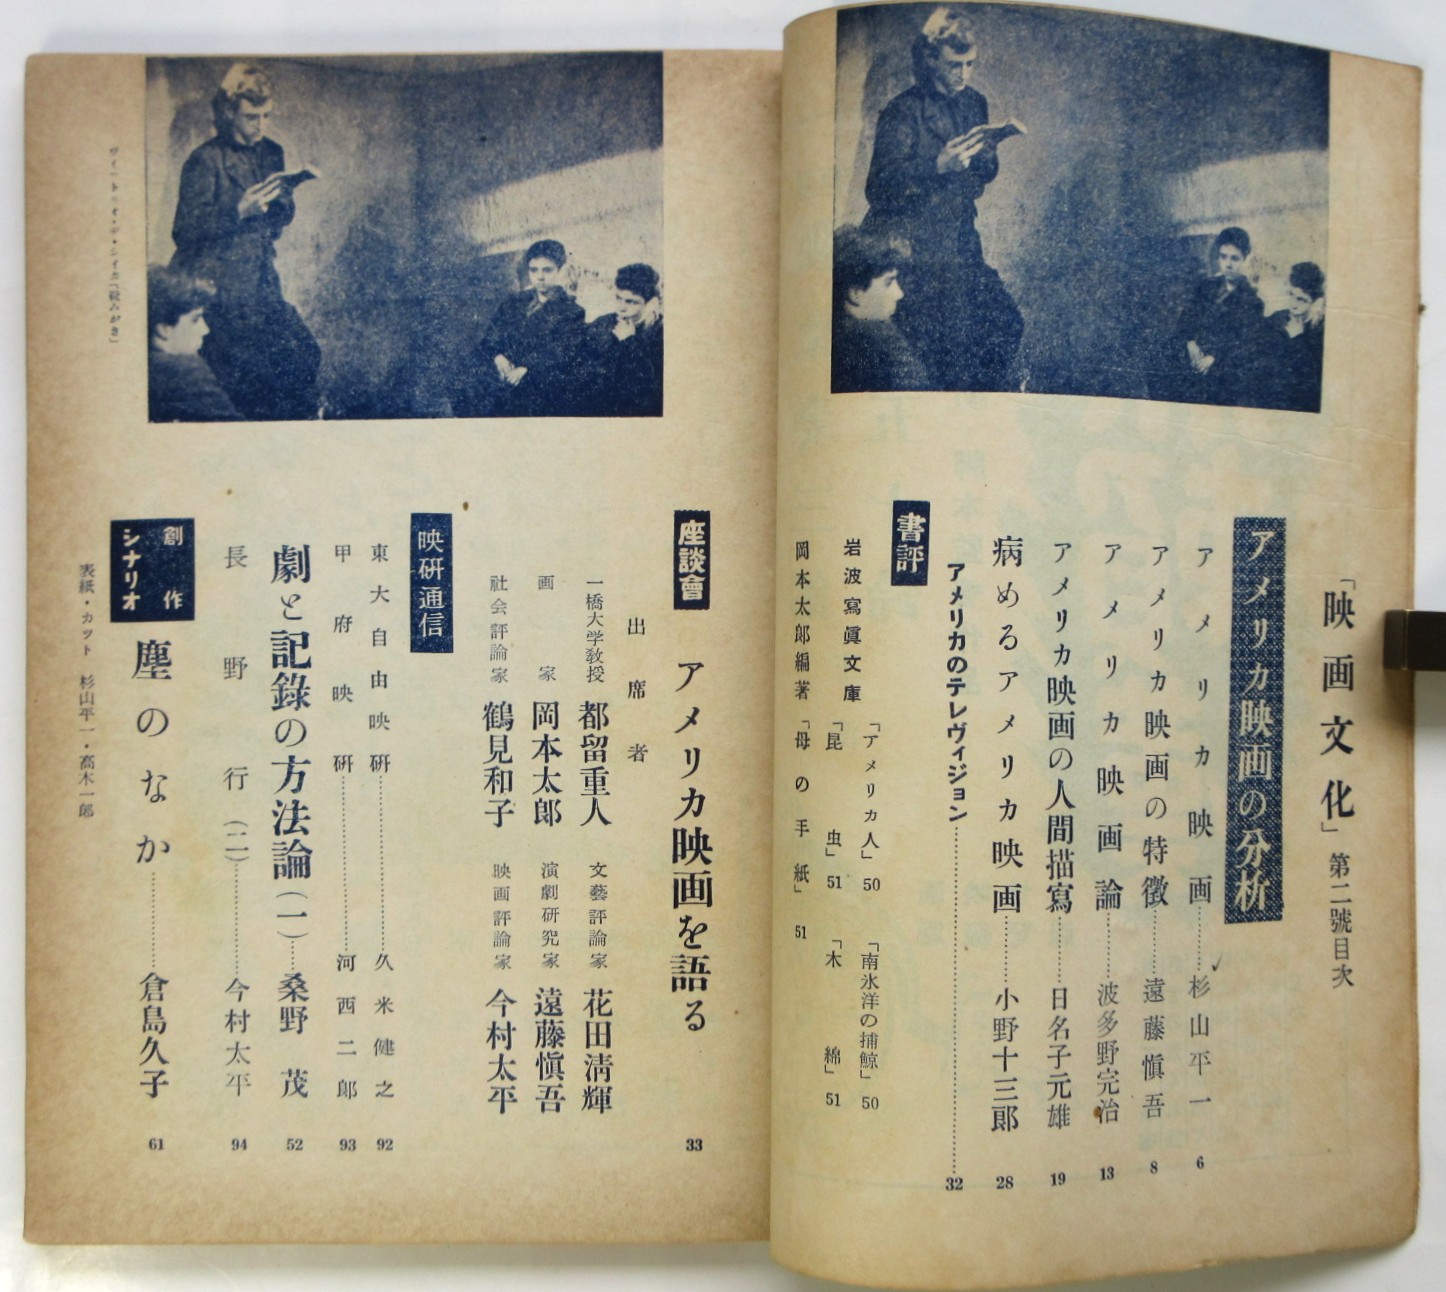 「映画文化」第二號目次
アメリカ映画の分析
アメリカ映画……杉山平一 6
アメリカ映画の特徴……遠藤愼吾 8
アメリカ映画論……波多野完治 13
アメリカ映画の人間描寫……日名子元雄 19
病めるアメリカ映画……小野十三郎 28
アメリカのテレヴィジョン……32
書評
岩波寫眞文庫「アメリカ人」50「南氷洋の捕鯨」50
「昆虫」51「木綿」51
岡本太郎編著「母の手紙」51
座談會
アメリカ映画を語る 33
出席者
一橋大学教授 都留重人 文藝評論家 花田淸輝
画家 岡本太郎 演劇研究家 遠藤愼吾
社会評論家 鶴見和子 映画評論家 今村太平
映研通信
東大自由映研……久米健之 92
甲府映研……河西二郎 93
劇と記錄の方法論(一)……桑野茂 52
長野行(二)……今村太平 94
創作
シナリオ
塵のなか……倉島久子 61
表紙・カット 杉山平一・高木一郎
ヴィットリオ・デ・シイカ「靴みがき」